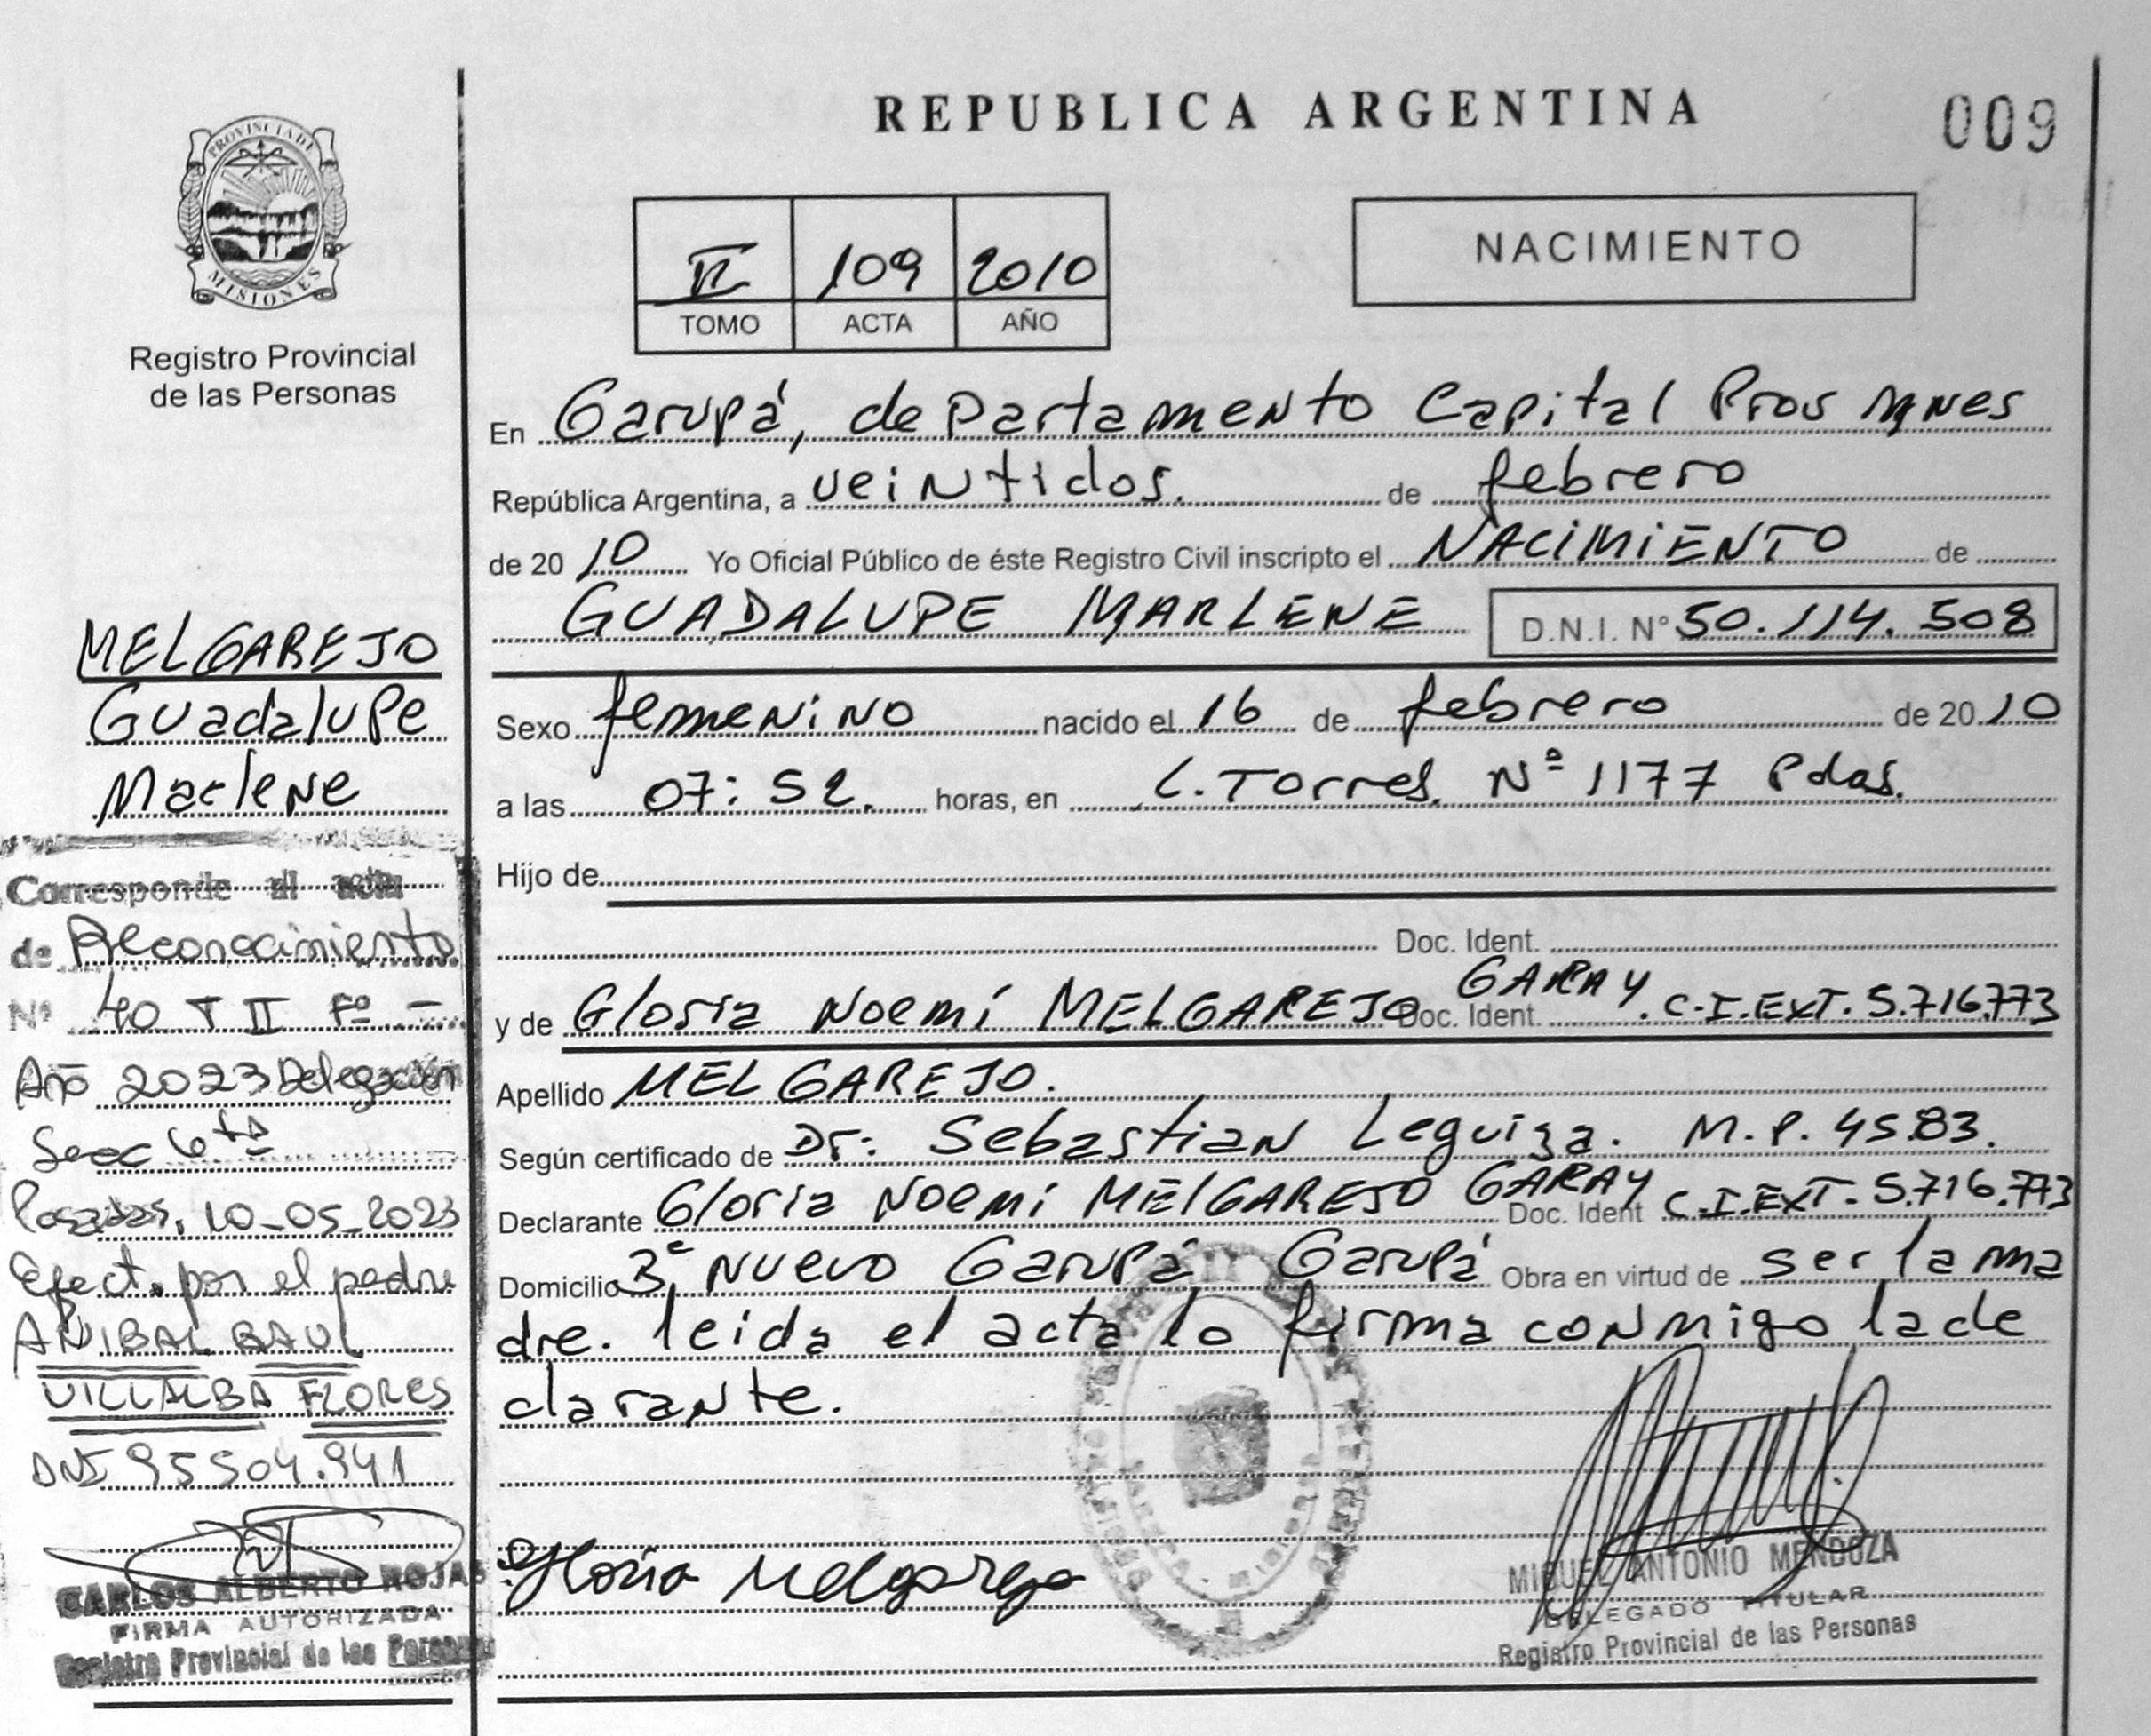 REPUBLICA ARGENTINA
009
PROVINCIA DE
MISIONES
Registro Provincial
de las Personas
II 109 2010
TOMO ACTA AÑO
NACIMIENTO
En Garupá, departamento Capital Mnes
República Argentina, a veintidos. de febrero
de 20 10 Yo Oficial Público de éste Registro Civil inscripto el NACIMIENTO de
GUADALUPE MARLENE D.N.I. Nº 50.114.508
Sexo femenino nacido el 16 de febrero de 20 10
a las 07:52. horas, en L. Torres. Nº 1177 Pdas.
Hijo de
Doc. Ident.
y de Gloria Noemí MELGAREJO GARAY Doc. Ident. C.I.EXT. 5.716.773
Apellido MELGAREJO.
Según certificado de Dr: Sebastian Leguiza. M.P. 4583.
Declarante Gloria Noemí MELGAREJO GARAY Doc. Ident C.I.EXT. 5.716.773
Domicilio Nuevo Garupá Garupá Obra en virtud de ser la ma
dre. leida el acta lo firma conmigo la de
clarante.
Gloria Melgarejo
MIGUEL ANTONIO MENDOZA
DELEGADO TITULAR
Registro Provincial de las Personas
MELGAREJO
Guadalupe
Marlene
Corresponde al acta
de Reconocimiento
Nº 40 T II Fº -
Año 2023 Delegación
Secc 6ta
Posadas, 10-05-2023
Efect. por el padre
ANIBAL RAUL
VILLALBA FLORES
DNI 95504.941
CARLOS ALBERTO ROJAS
FIRMA AUTORIZADA
Registro Provincial de las Personas